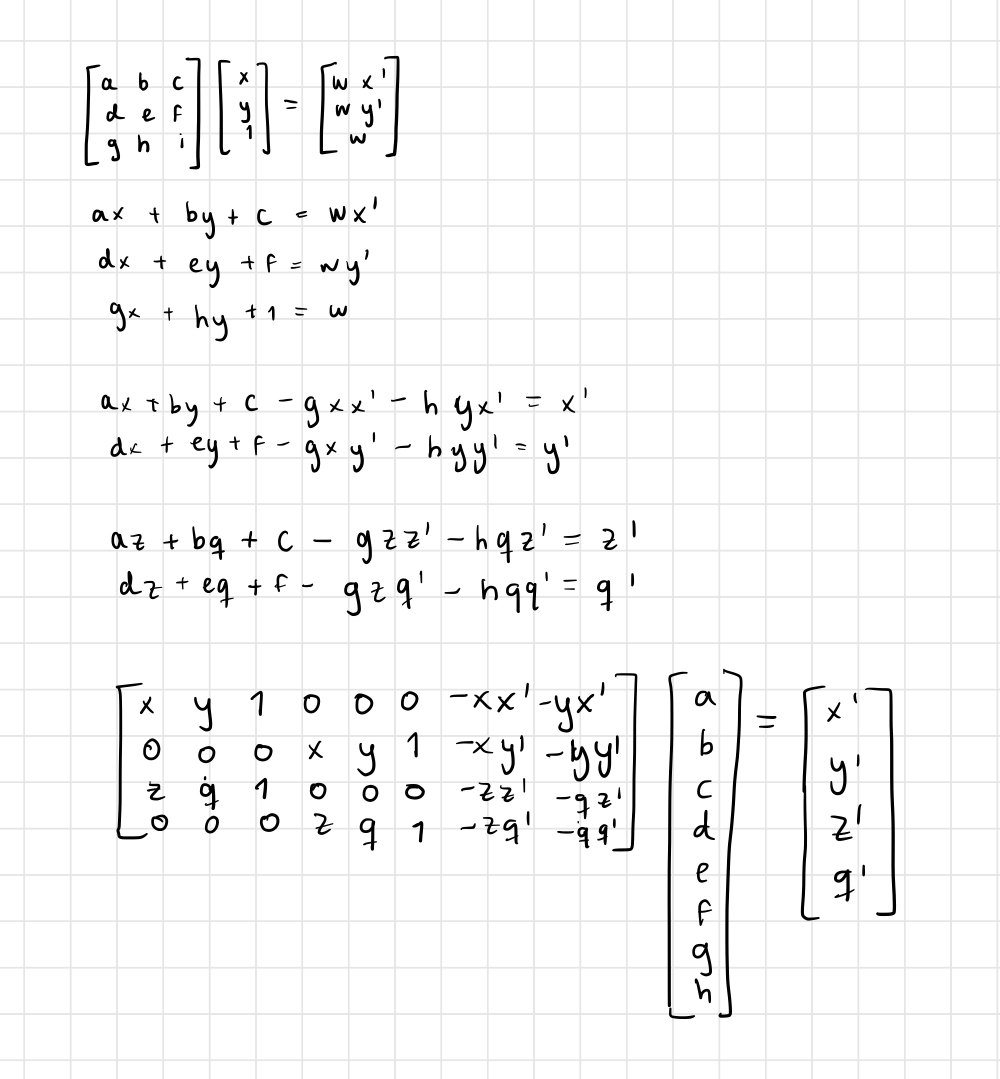 [a b c] [x] = [w x']
[d e f] [y] [w y']
[g h i] [1] [w]
ax + by + c = wx'
dx + ey + f = wy'
gx + hy + 1 = w
ax + by + c - gxx' - hyx' = x'
dx + ey + f - gxy' - hyy' = y'
az + bq + c - gzz' - hqz' = z'
dz + eq + f - gzq' - hqq' = q'
[x y 1 0 0 0 -xx' -yx'] [a] = [x']
[0 0 0 x y 1 -xy' -yy'] [b] [y']
[z q 1 0 0 0 -zz' -qz'] [c] [z']
[0 0 0 z q 1 -zq' -qq'] [d] [q']
[e]
[f]
[g]
[h]